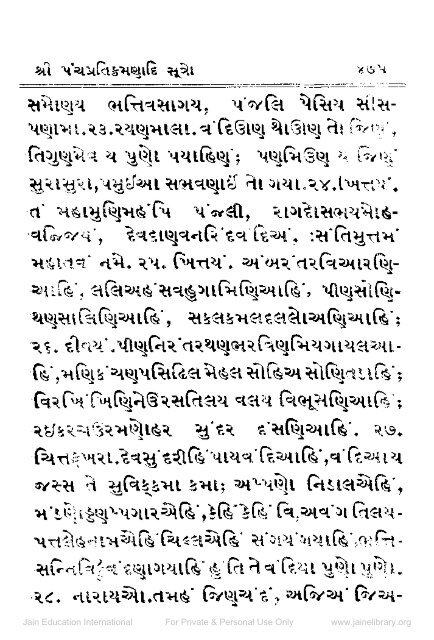 શ્રી પંચપ્રતિક્રમણાદિ સૂત્રો ૪૭૫
સમોણય ભત્તિવસાગય, પંજલિ પેસિય સીસ-
પણામા.૨૩.રયણમાલા.વંદિઊણ થોઊણ તો જિણં,
તિગુણમેવ ય પુણો પયાહિણં; પણમિઊણ ય જિણં
સુરાસુરા,પમુઇઆ સભવણાઇં તો ગયા.૨૪.ખિત્તયં.
તં મહામુણિમહંપિ પંજલી, રાગદોસભયમોહ-
વજ્જિયં, દેવદાણવનરિંદવંદિઅં, સંતિમુત્તમં
મહાતવં નમે. ૨૫. ખિત્તયં. અંબરંતરવિઆરણિ-
આહિં, લલિઅહંસવહુગામિણિઆહિં, પીણસોણિ-
થણસાલિણિઆહિં, સકલકમલદલલોઅણિઆહિં;
૨૬. દીવયં.પીણનિરંતરથણભરવિણમિયગાયલઆ-
હિં,મણિકંચણપસિઢિલમેહલસોહિઅસોણિતડાહિં;
વિરખિંખિણિનેઉરસતિલય વલય વિભૂસણિઆહિં;
રઇકરચઉરમણોહર સુંદર દંસણિઆહિં. ૨૭.
ચિત્તક્ખરા.દેવસુંદરીહિં પાયવંદિઆહિં,વંદિઆ ય
જસ્સ તે સુવિક્કમા કમા; અપ્પણો નિડાલએહિં,
મંડણોડ્ડણપ્પગારએહિં,કેહિં કેહિં વિ,અવંગ તિલય-
પત્તલેહનામએહિં ચિલ્લએહિં સંગયંગયાહિં,ભત્તિ-
સન્નિવિટ્ઠવંદણાગયાહિં હુંતિ તે વંદિયા પુણો પુણો.
૨૮. નારાયઓ.તમહં જિણચંદં, અજિઅં જિઅ-
Jain Education International For Private & Personal Use Only www.jainelibrary.org